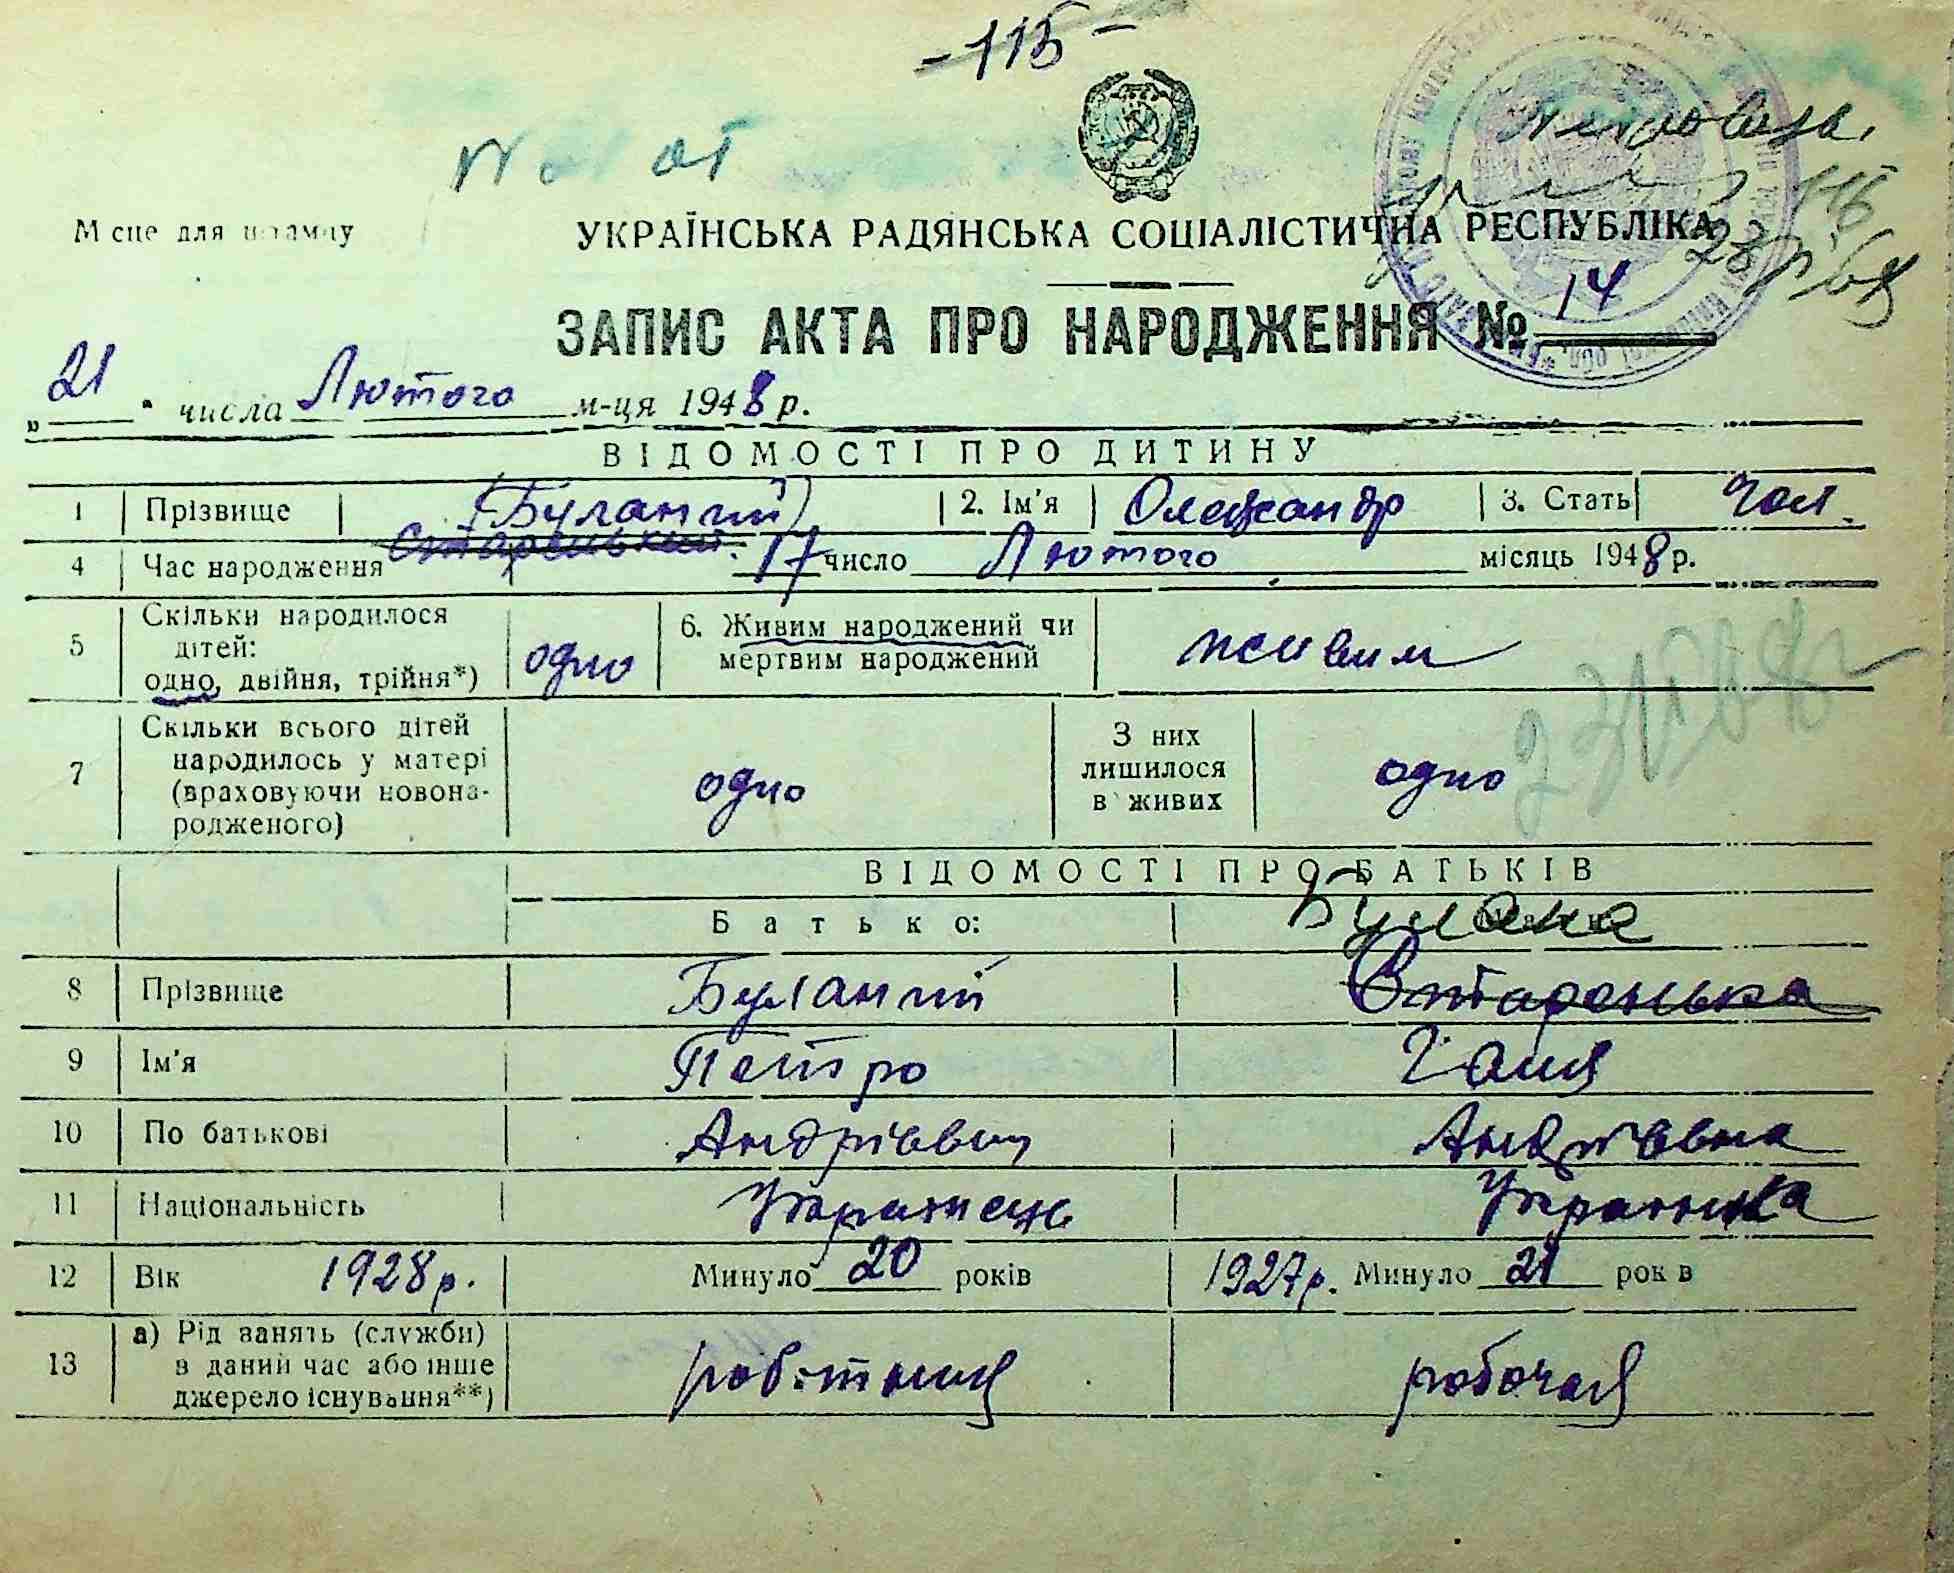 - 115 -
Місце для штампу
УКРАЇНСЬКА РАДЯНСЬКА СОЦІАЛІСТИЧНА РЕСПУБЛІКА
ЗАПИС АКТА ПРО НАРОДЖЕННЯ № 14
„21" числа Лютого м-ця 1948 р.
ВІДОМОСТІ ПРО ДИТИНУ
1 Прізвище (Буланий) 2. Ім'я Олександр 3. Стать Чол.
4 Час народження 17 число Лютого місяць 1948 р.
5 Скільки народилося дітей: одно, двійня, трійня*) одно 6. Живим народжений чи мертвим народжений живим
7 Скільки всього дітей народилось у матері (враховуючи новонародженого) одно З них лишилося в живих одно
ВІДОМОСТІ ПРО БАТЬКІВ
Батько: Булана
8 Прізвище Буланий
9 Ім'я Петро Ганя
10 По батькові Андрієвич Андріївна
11 Національність Українець Українка
12 Вік 1928 р. Минуло 20 років 1927 р. Минуло 21 років
13 а) Рід занять (служби) в даний час або інше джерело існування**) робітниця робочая